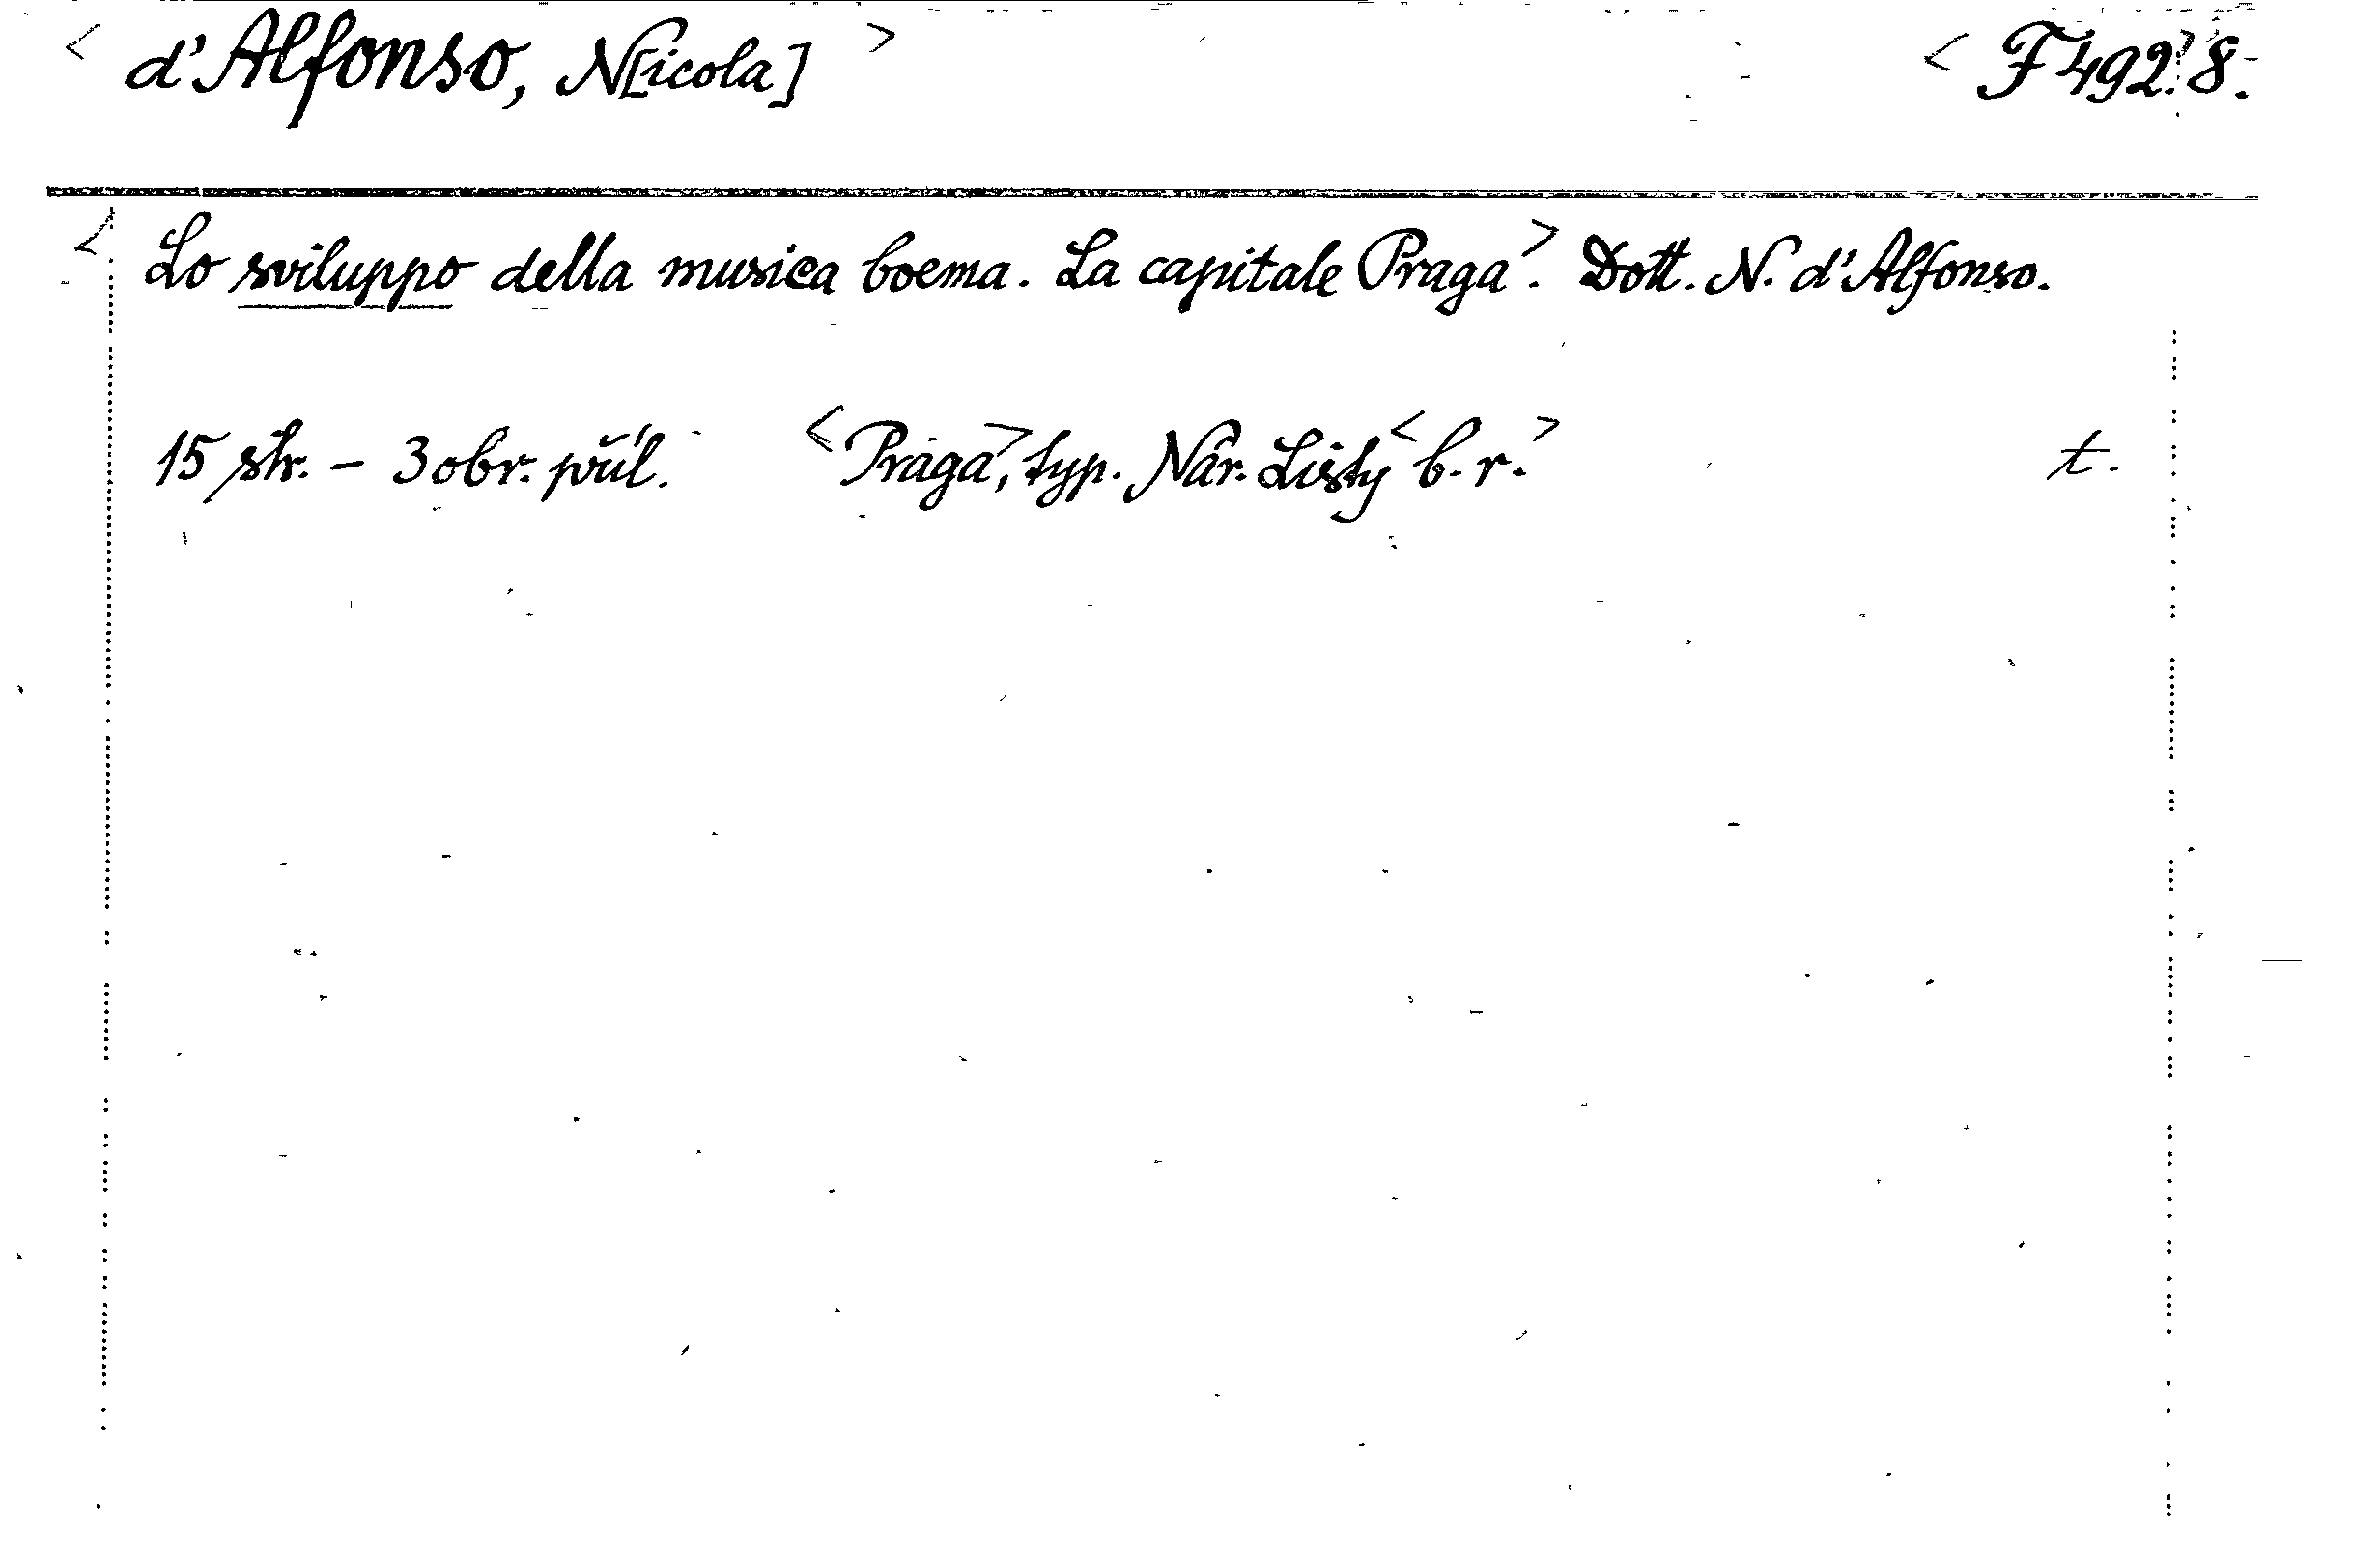 < d'Alfonso, N[icola] > < F 492. 8.
< Lo sviluppo della musica boema. La capitale Praga >. Dott. N. d'Alfonso.
15 str. - 3 obr. příl. < Praga >, typ. Nár. Listy < b. r. > t.